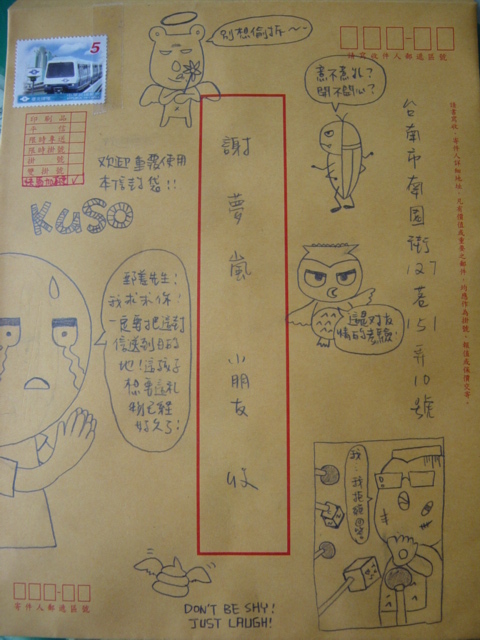 5
別想偷拆~~
請寫收件人郵遞區號
意不意外?
開不開心?
印刷品
平信
限時專送
限時掛號
掛號
雙掛號
歡迎重複使用
本信封袋!!
KUSO
郵差先生:
我求求你,
一定要把這封
信送到目的
地!這孩子
想要這禮
物已經
好久了!
謝夢嵐 小朋友 收
這是對友
情的考驗!
台南市南園街127巷151弄10號
DON'T BE SHY!
JUST LAUGH!
寄件人郵遞區號